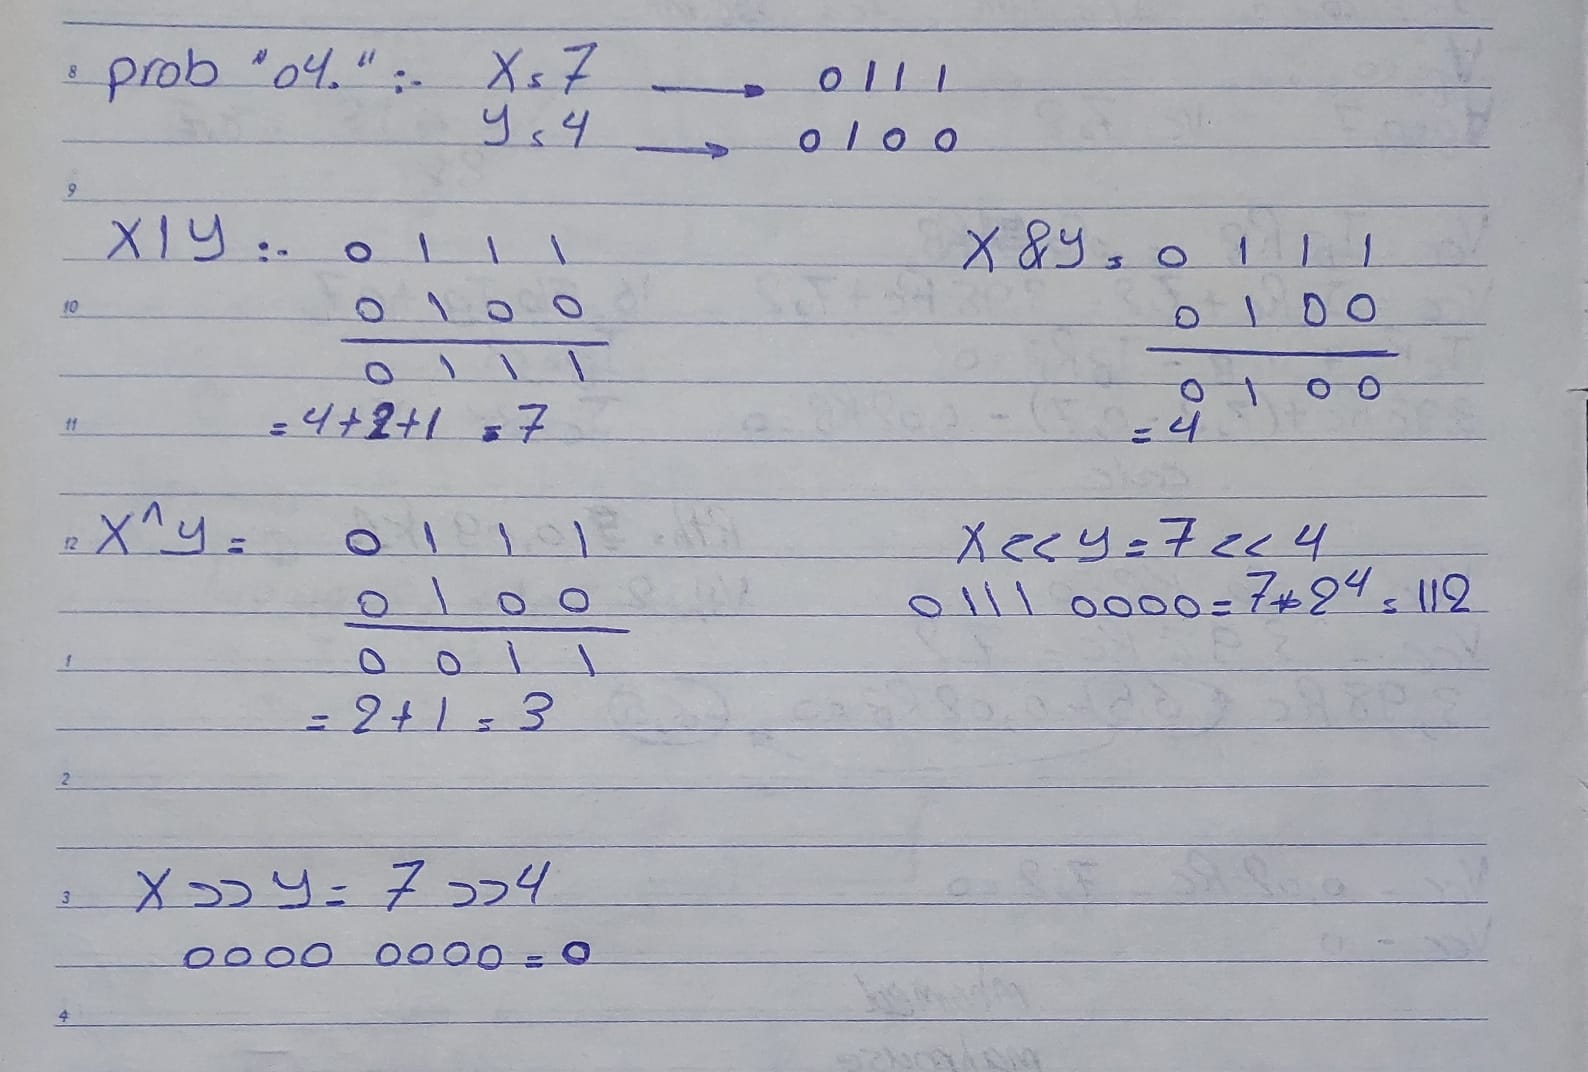 8 prob "04." :- X = 7 → 0 1 1 1
y = 4 → 0 1 0 0
9
X | y :- 0 1 1 1
10 0 1 0 0
0 1 1 1
11 = 4+2+1 = 7
X & y = 0 1 1 1
0 1 0 0
0 1 0 0
= 4
12 X ^ y = 0 1 1 1
0 1 0 0
1 0 0 1 1
= 2+1 = 3
X << y = 7 << 4
0111 0000 = 7*2⁴ = 112
2
3 X >> y = 7 >> 4
0000 0000 = 0
4